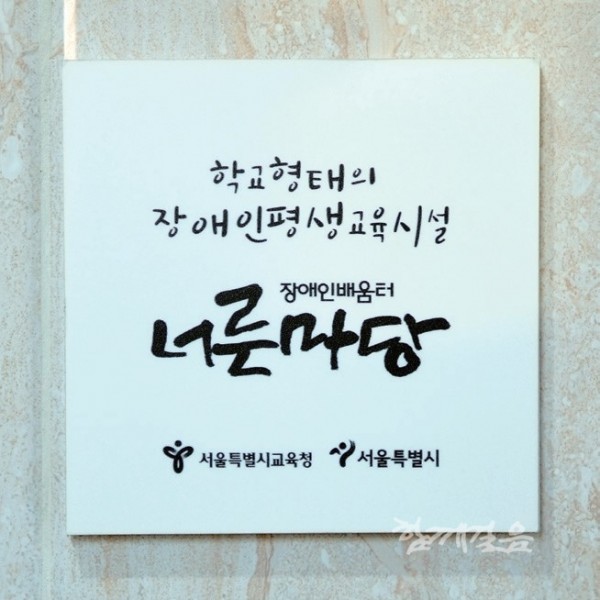 학교형태의
장애인평생교육시설
장애인배움터
너른마당
서울특별시교육청 서울특별시
함께걸음